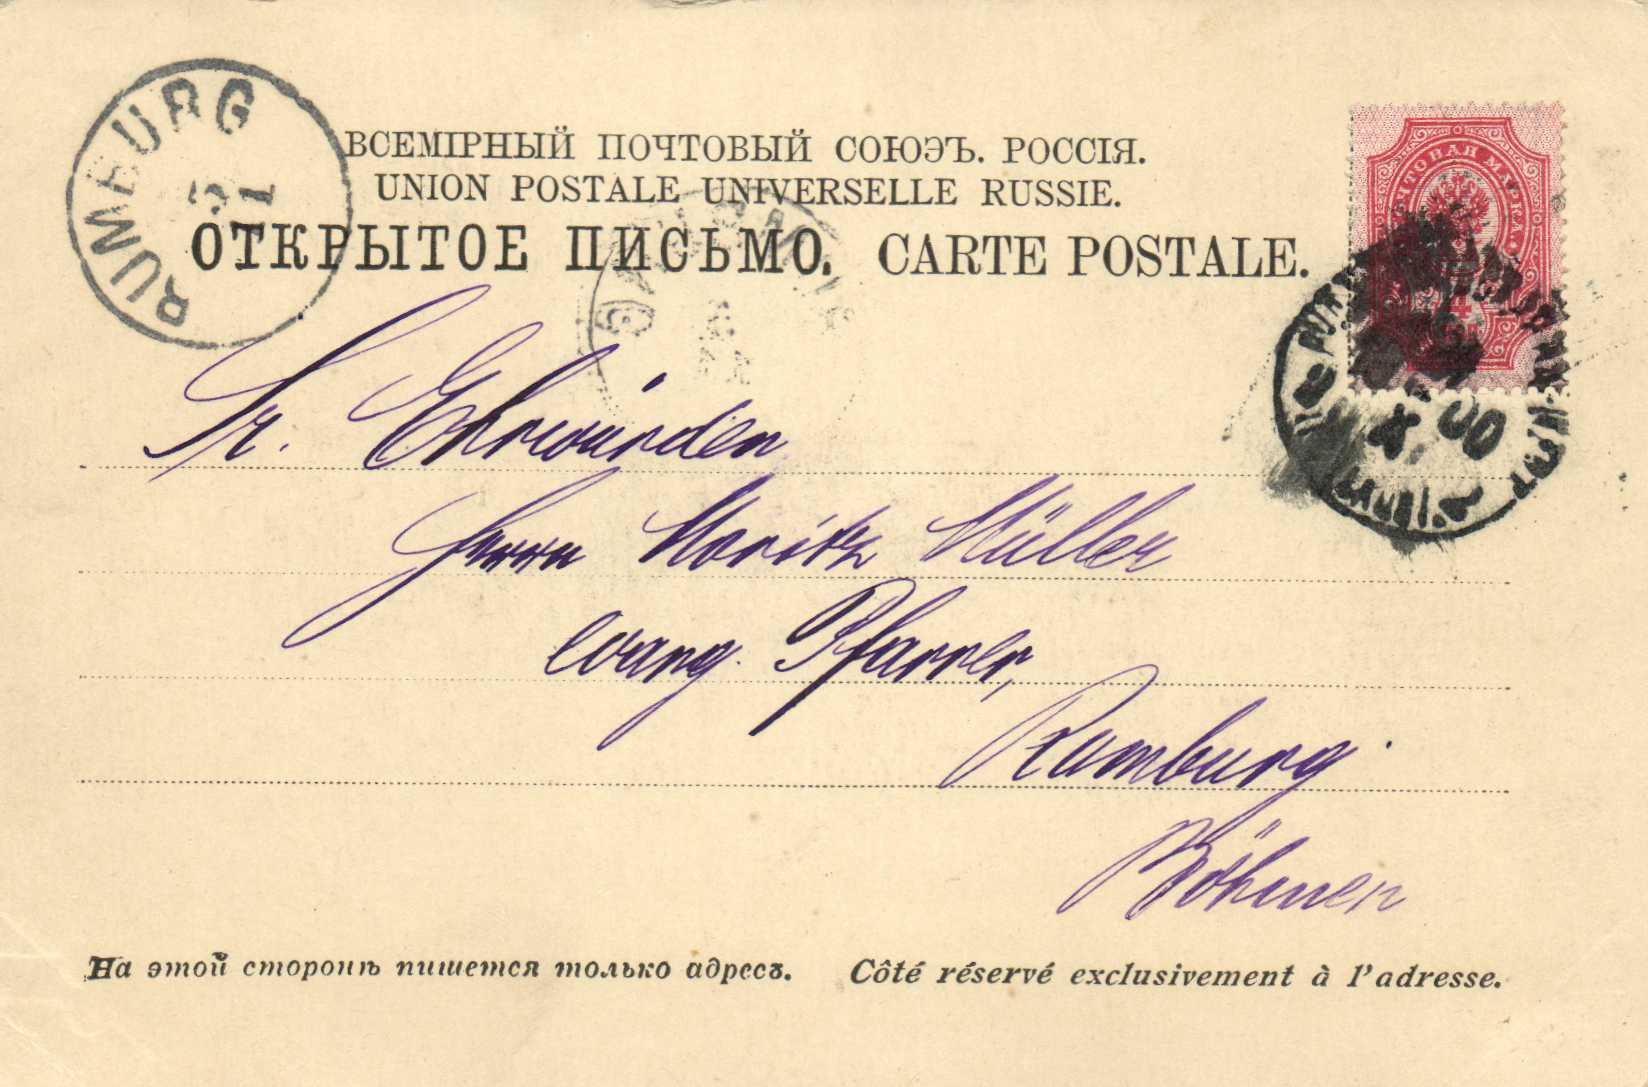 RUMBURG
5
1
ВСЕМІРНЫЙ ПОЧТОВЫЙ СОЮЭЪ. РОССІЯ.
UNION POSTALE UNIVERSELLE RUSSIE.
ОТКРЫТОЕ ПИСЬМО. CARTE POSTALE.
ПОЧТОВАЯ МАРКА
4
00
Sr. Ehrwürden
Herrn Moritz Müller
evang. Pfarrer,
Rumburg
Böhmen
На этой сторонѣ пишется только адресъ. Côté réservé exclusivement à l'adresse.